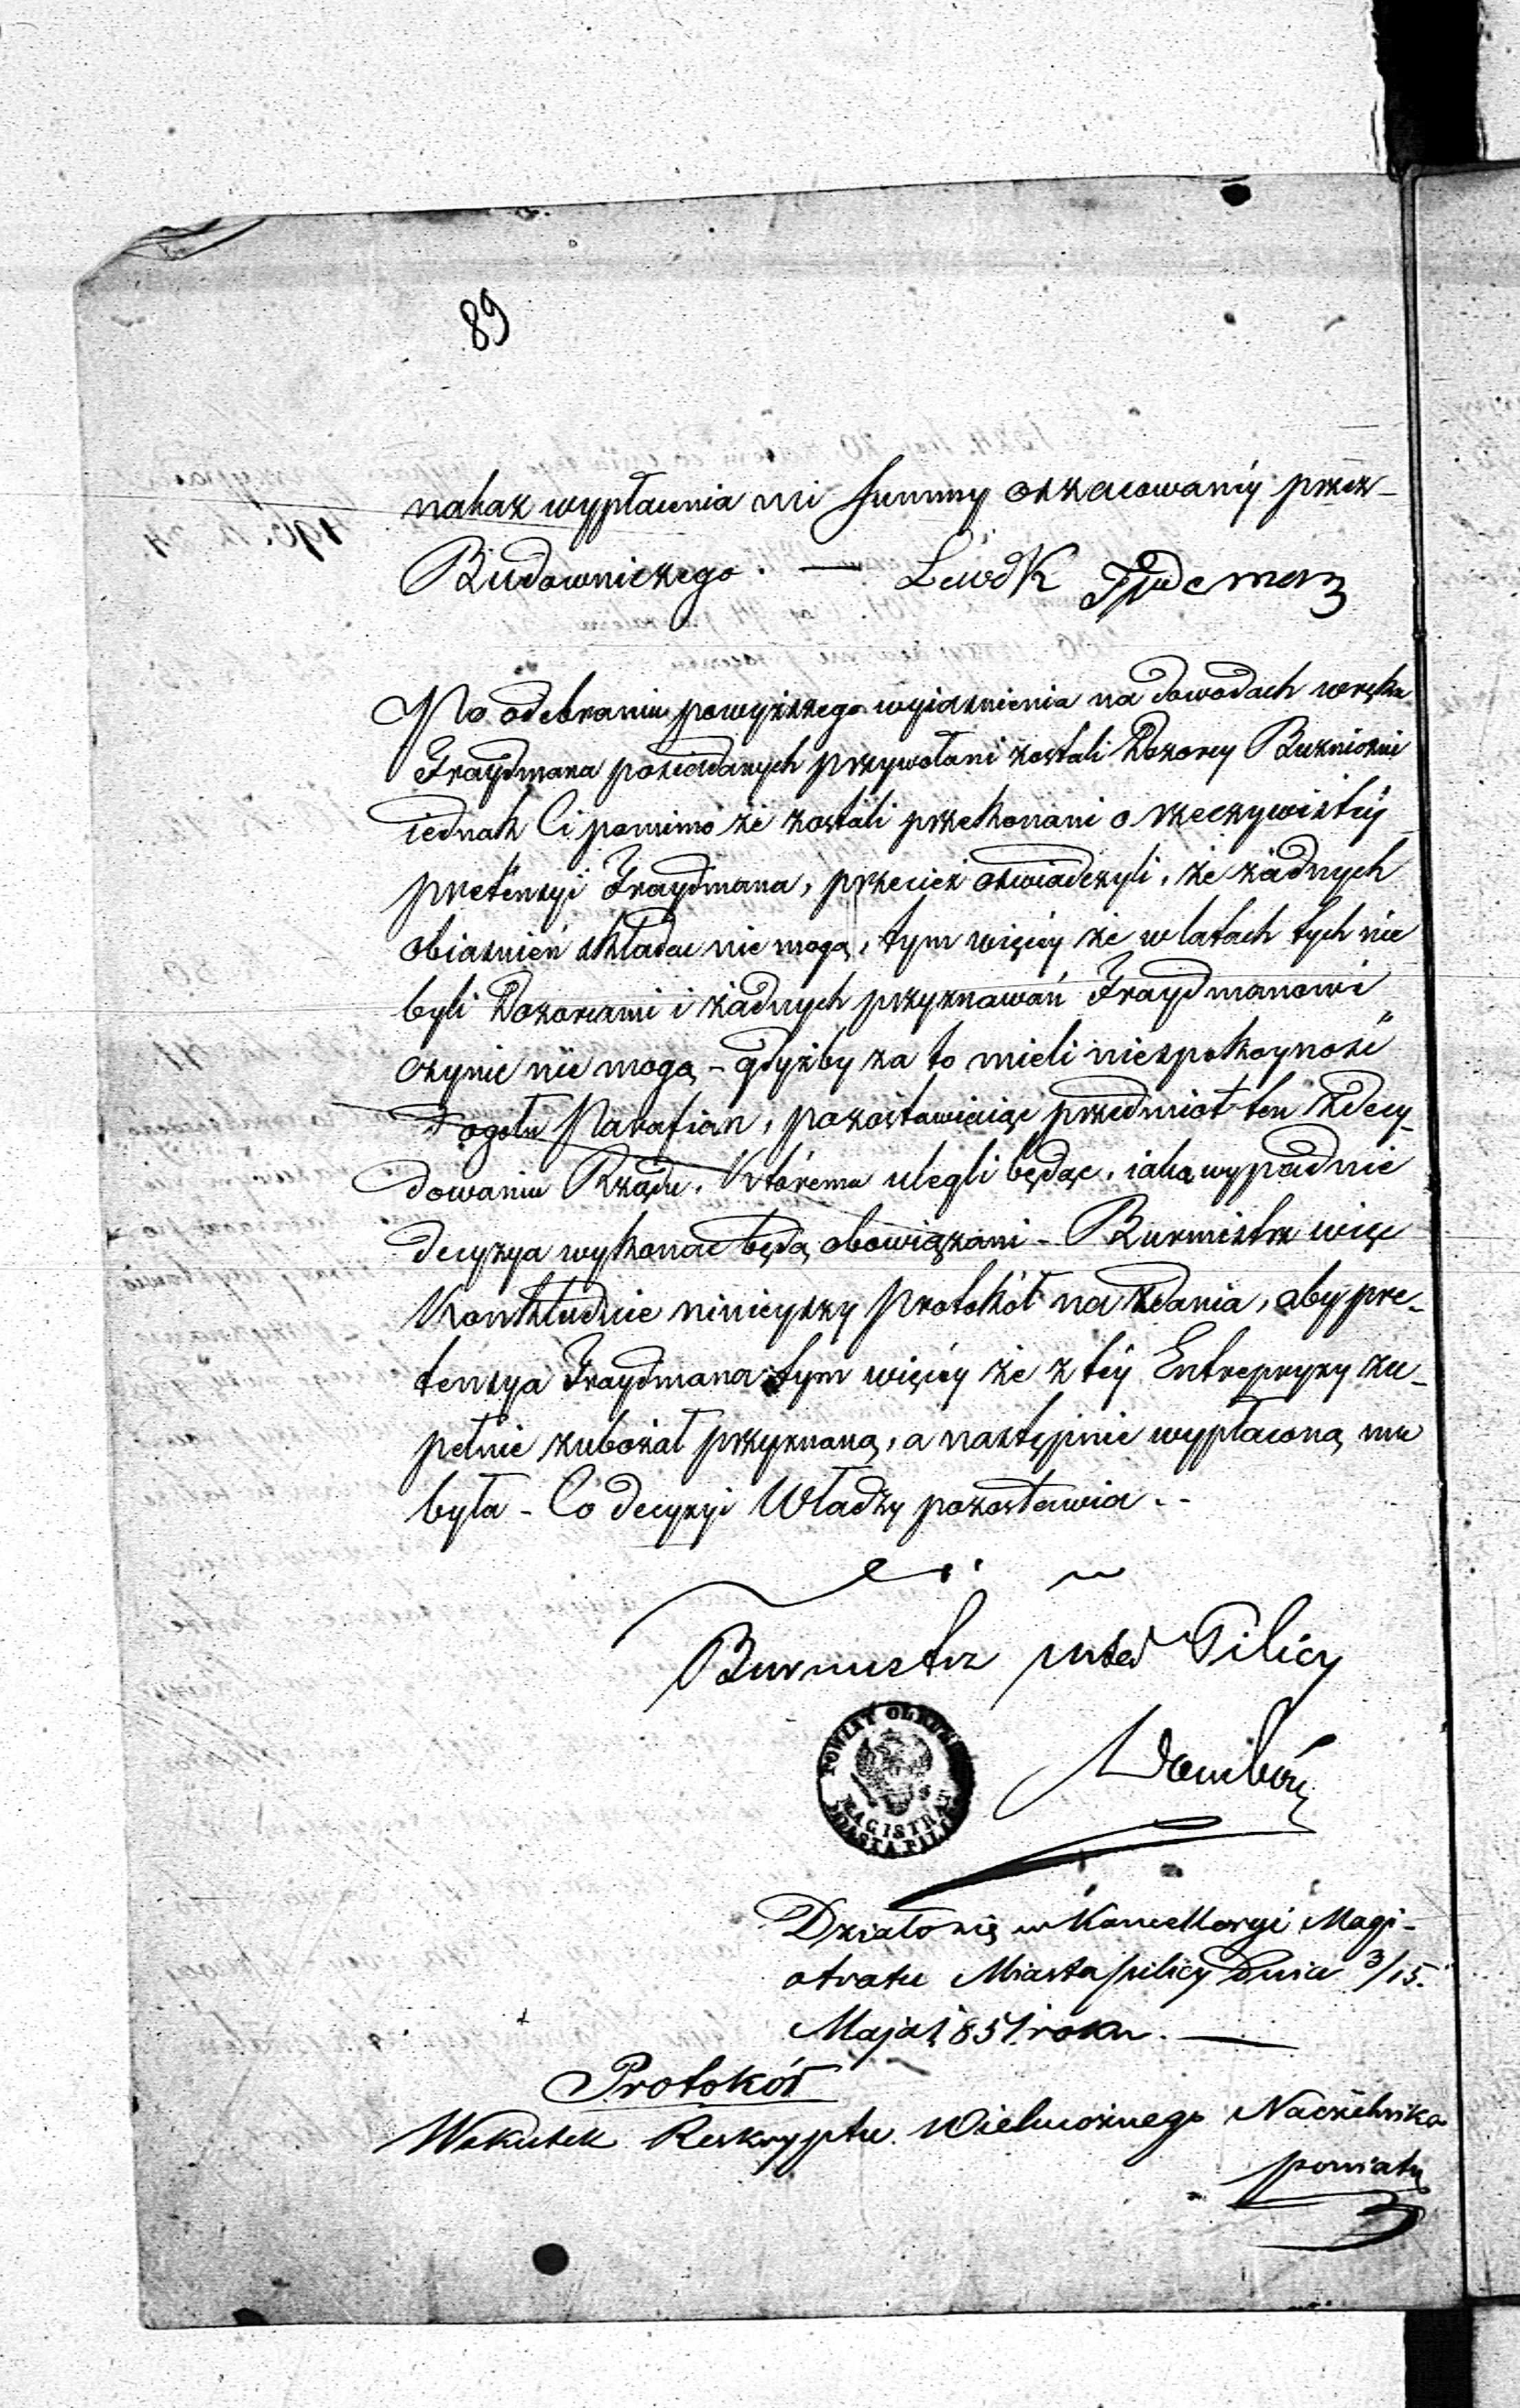 89
nakaz wypłacenia mi Summy oszacowanéy przez
Budowniczego. — Lewek
Po odebraniu powyższego wyiasnienia na dowodach w ręku
Fraydmana posiadanych przywołani zostali Dozorcy Buzniczni
iednak Ci pomimo że zostali przekonani o rzeczywistéy
pretensyi Fraydmana, przecież oswiadczyli, że żadnych
obiasnień składac nie mogą, tym więcéy że w latach tych nie
byli Dozorcami i żadnych przyznawań Fraydmanowi
czynic nie mogą – gdyżby za to mieli niespokoynosć
z ogołu Parafian, pozostawiaiąc przedmiot ten zdecy-
dowaniu Rządu, któremu ulegli będąc, iaka wypadnie
decyzya wykonac będą obowiązani – Burmistrz więc
Konkluduie ninieyszy protokół na zdania, aby pre-
tensya Fraydmana tym więcéy że z téy Entrepryzy zu-
pełnie zubożał przyznaną, a następnie wypłaconą mu
była – Co decyzyi Władzy pozostawia. –
Burmistrz miasta Pilicy
POWIAT OLKUSKI
MAGISTRAT
MIASTA PILICY
Działo się w Kancellaryi Magi-
stratu Miasta Pilicy Dnia 3/15.
Maja 1851 roku. —
Protokół
W skutek Reskryptu Wielmożnego Naczelnika
powiatu